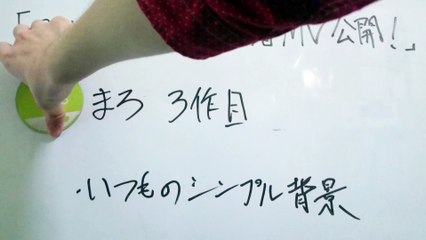 「 MV 公開!」
まろ 3作目
・いつものシンプル背景